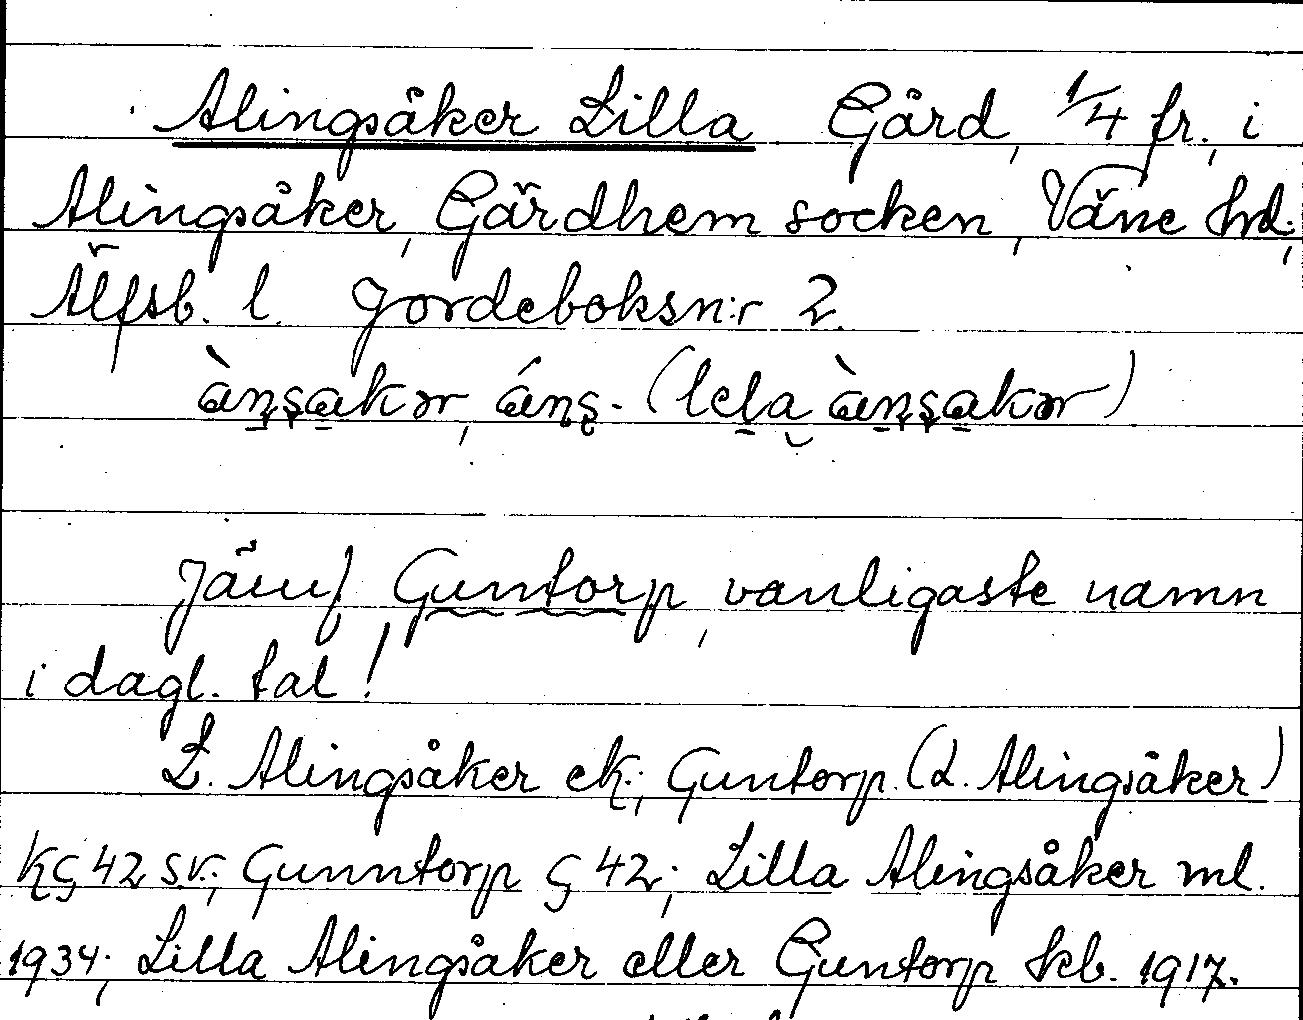 Alingsåker Lilla Gård, 1/4 fr., i
Alingsåker, Gärdhem socken, Väne hd;
Älfsb. l. Jordeboksn:r 2.
àn̠ṣa̠kər, ánṣ- (lel̠a àn̠ṣa̠kər)
Jämf Guntorp, vanligaste namn
i dagl. tal!
L. Alingsåker ek.; Guntorp (L. Alingsåker)
KG 42 sv.; Gunntorp G 42; Lilla Alingsåker ml.
1934; Lilla Alingsåker eller Guntorp kb. 1917.